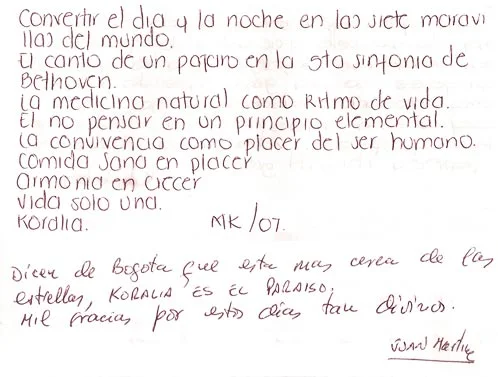 Convertir el dia y la noche en las siete maravi
llas del mundo.
El canto de un pajaro en la 5ta sinfonia de
Bethoven.
La medicina natural como Ritmo de vida.
El no pensar en un principio elemental.
La convivencia como placer del ser humano.
comida sana en placer
armonia en crecer
vida solo una.
Koralia. MK/07.
Dicen de Bogota que esta mas cerca de las
estrellas, KORALIA ES EL PARAISO.
Mil gracias por estos dias tan divinos.
JUAN